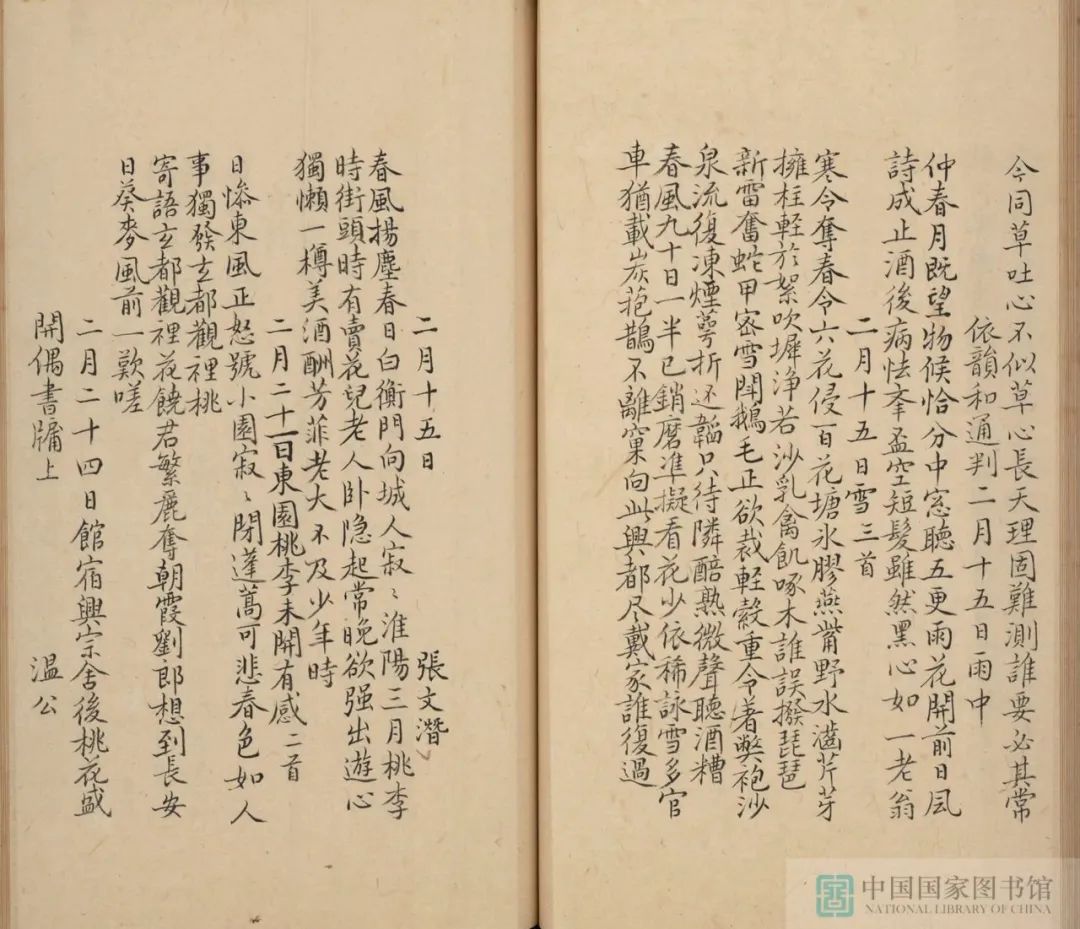 今同草吐心不似草心長天理固難測誰要必其常
依韻和通判二月十五日雨中
仲春月既望物候恰分中窓聽五更雨花開前日風
詩成止酒後病怯奉盃空短髮雖然黑心如一老翁
二月十五日雪三首
寒令奪春令六花侵百花塘氷膠燕觜野水溘芹芽
擁柱軽於絮吹墀浄若沙乳禽飢啄木誰誤撥琵琶
新雷奮蛇甲宻雪鬪鵝毛正欲裁軽縠重令著弊袍沙
泉流復凍煙蕚折还韜只待隣醅熟微聲聽酒糟
春風九十日一半已銷磨凖擬看花少依稀詠雪多官
車猶載炭苑鵲不離窠向此興都尽戴家誰復過
二月十五日
張文潛
春風揚塵春日白衡門向城人寂〻淮陽三月桃李
時街頭時有賣花兒老人卧隐起常晚欲强出遊心
獨懶一樽美酒酬芳菲老大不及少年時
二月二十一日東園桃李未開有感二首
日惨東風正怒號小園寂〻閉蓬蒿可悲春色如人
事獨發玄都觀裡桃
寄語玄都觀裡花饒君繁麗奪朝霞劉郎想到長安
日葵麥風前一歎嗟
二月二十四日館宿興宗舍後桃花盛
開偶書牖上
温公
中国国家图书馆
NATIONAL LIBRARY OF CHINA